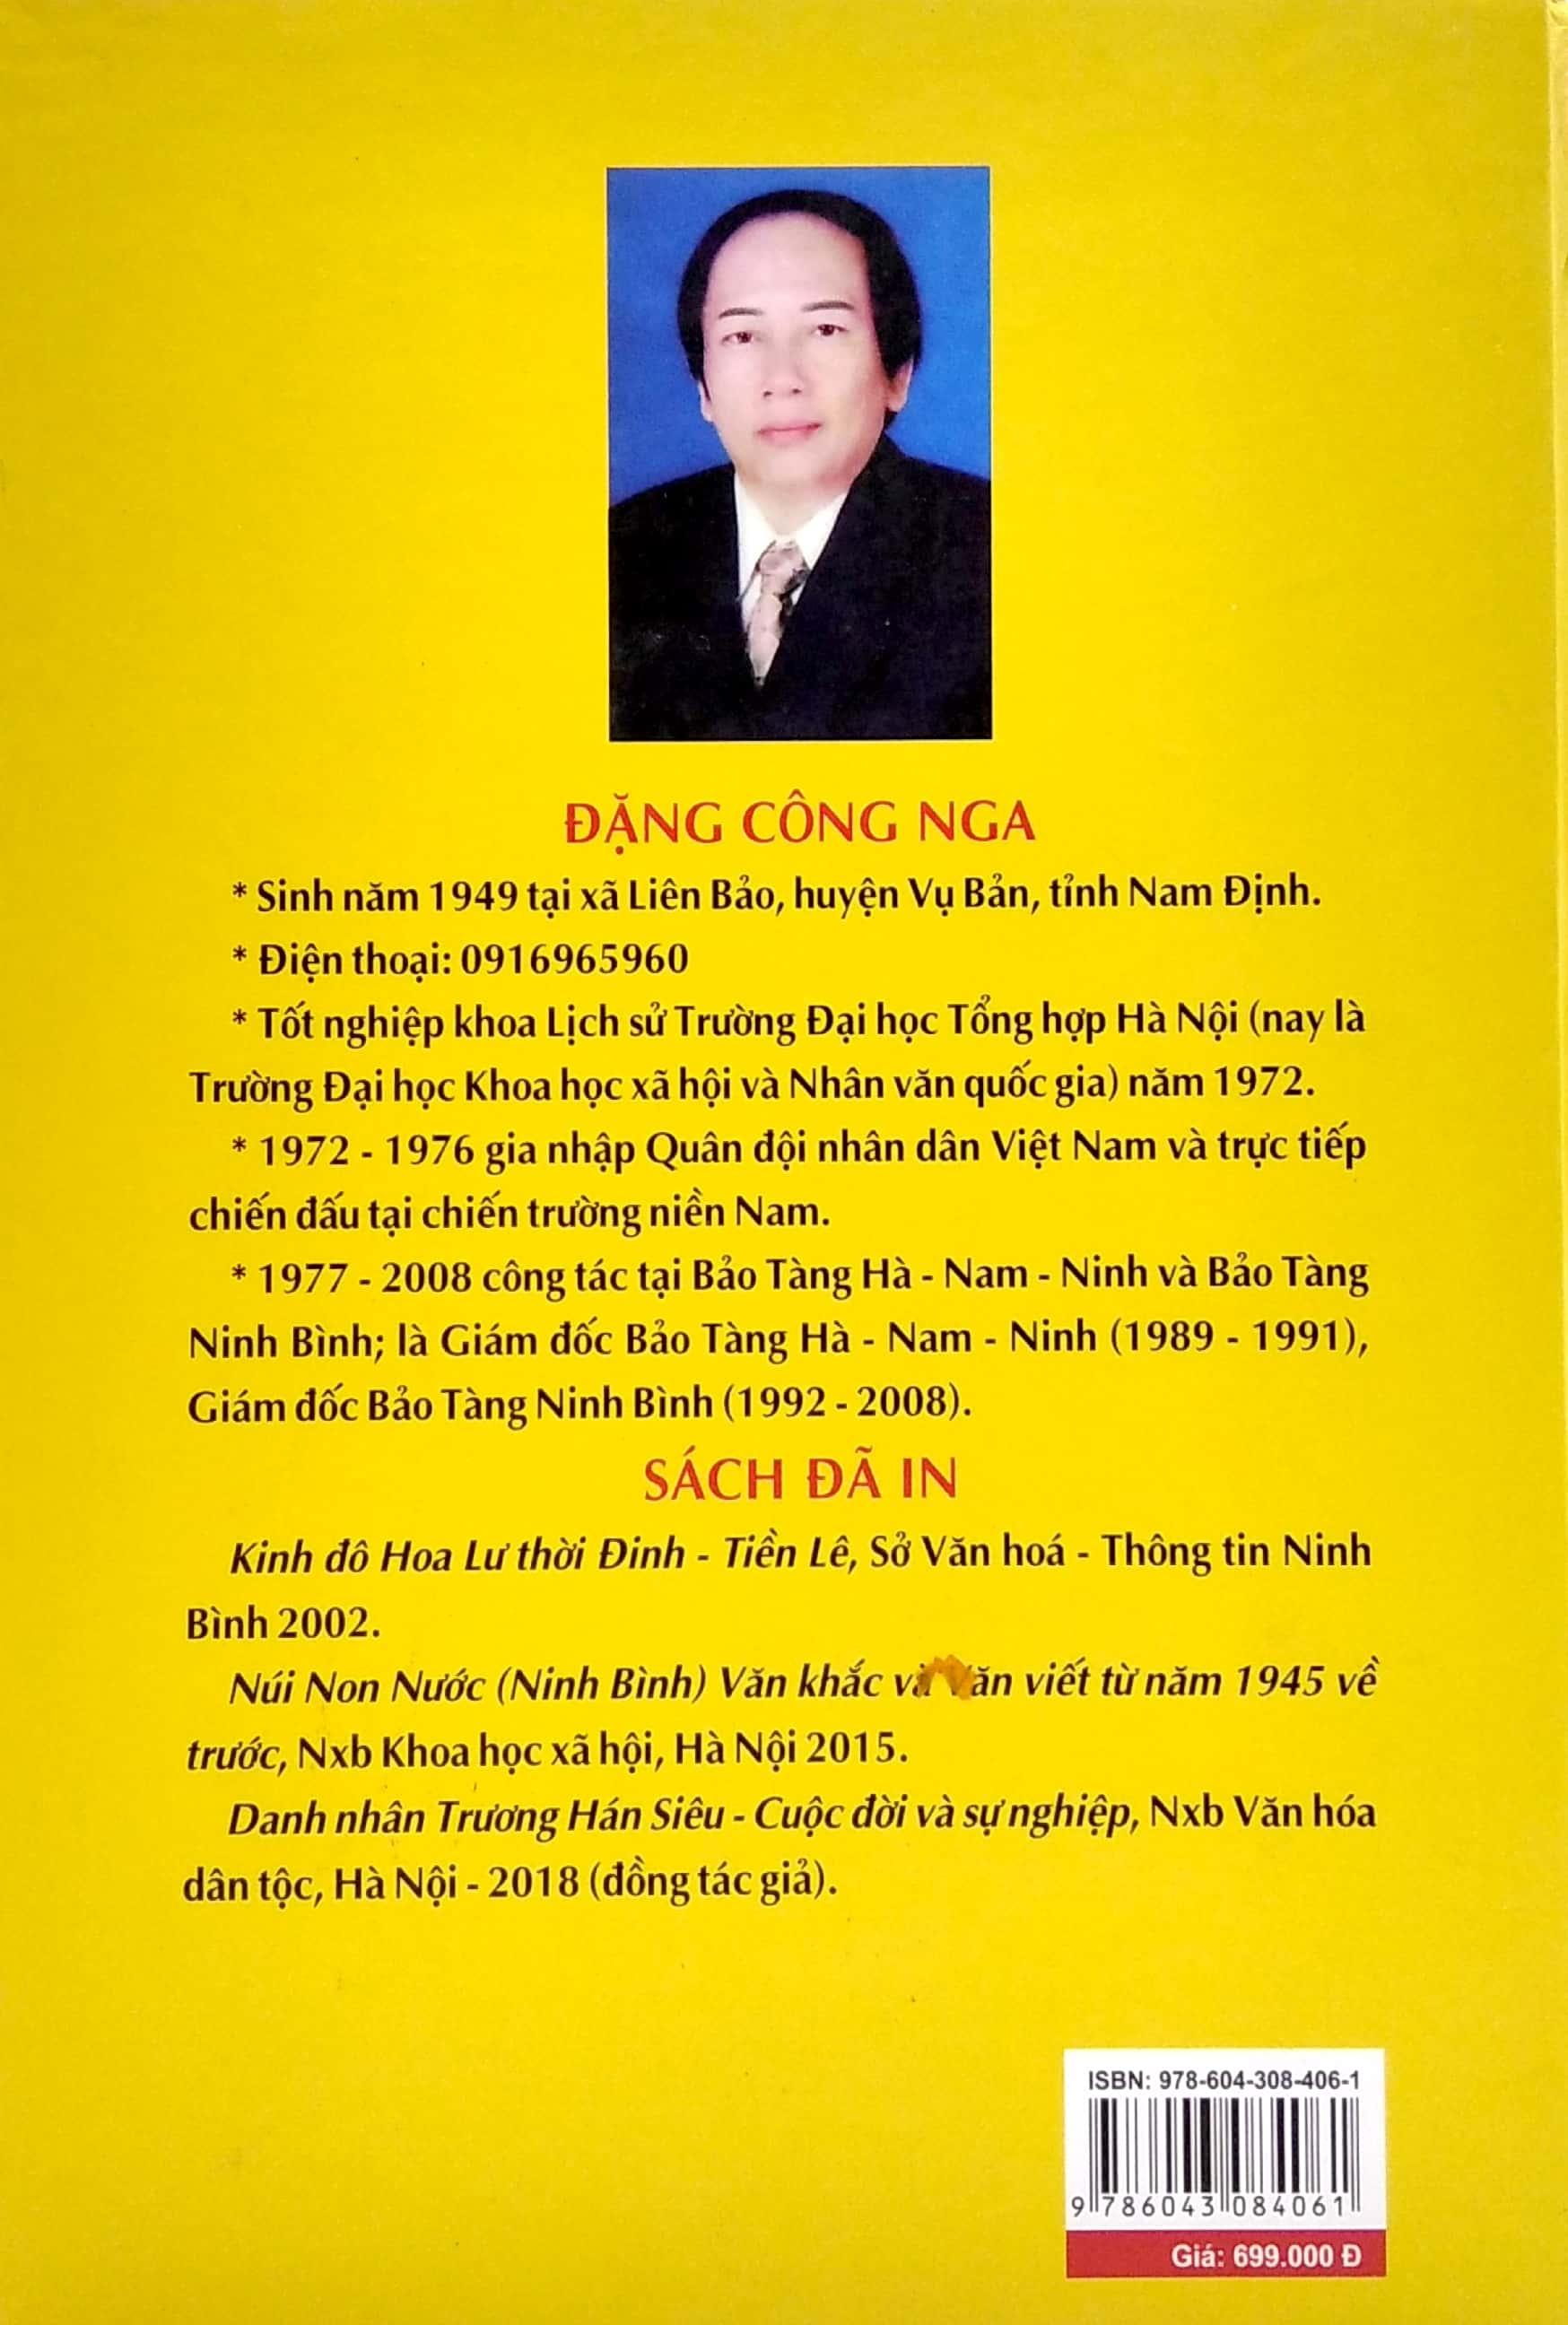 ĐẶNG CÔNG NGA
* Sinh năm 1949 tại xã Liên Bảo, huyện Vụ Bản, tỉnh Nam Định.
* Điện thoại: 0916965960
* Tốt nghiệp khoa Lịch sử Trường Đại học Tổng hợp Hà Nội (nay là
Trường Đại học Khoa học xã hội và Nhân văn quốc gia) năm 1972.
* 1972 - 1976 gia nhập Quân đội nhân dân Việt Nam và trực tiếp
chiến đấu tại chiến trường niền Nam.
* 1977 - 2008 công tác tại Bảo Tàng Hà - Nam - Ninh và Bảo Tàng
Ninh Bình; là Giám đốc Bảo Tàng Hà - Nam - Ninh (1989 - 1991),
Giám đốc Bảo Tàng Ninh Bình (1992 - 2008).
SÁCH ĐÃ IN
Kinh đô Hoa Lư thời Đinh - Tiền Lê, Sở Văn hoá - Thông tin Ninh
Bình 2002.
Núi Non Nước (Ninh Bình) Văn khắc và văn viết từ năm 1945 về
trước, Nxb Khoa học xã hội, Hà Nội 2015.
Danh nhân Trương Hán Siêu - Cuộc đời và sự nghiệp, Nxb Văn hóa
dân tộc, Hà Nội - 2018 (đồng tác giả).
ISBN: 978-604-308-406-1
9 786043 084061
Giá: 699.000 Đ